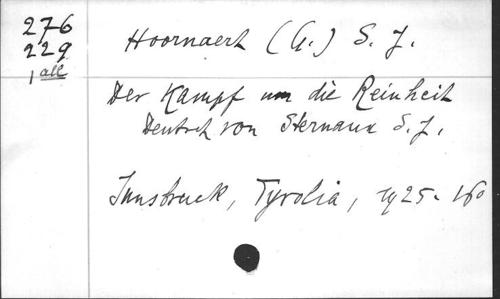 276
229
1 all
Hoornaert (G.) S. J.
Der Kampf um die Reinheit
Deutsch von Sternaux S. J.
Innsbruck, Tyrolia, 1925. 160